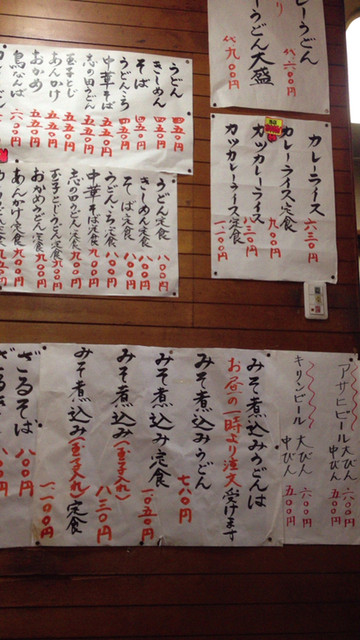 カレーうどん
代六〇〇円
カレーうどん大盛
代九〇〇円
カレーライス
六三〇円
カレーライス定食
九〇〇円
カツカレーライス
八三〇円
カツカレーライス定食
一、一〇〇円
うどん
四五〇円
きしめん
四五〇円
そば
四五〇円
うどん・ころ
四五〇円
中華そば
五五〇円
志の田うどん
五五〇円
玉子とじ
五五〇円
あんかけ
五五〇円
おかめ
五五〇円
鳥なんば
六〇〇円
うどん定食
八〇〇円
きしめん定食
八〇〇円
そば定食
八〇〇円
うどん・ころ定食
八〇〇円
中華そば定食
九〇〇円
志の田うどん定食
九〇〇円
玉子とじうどん定食
九〇〇円
おかめうどん定食
九〇〇円
あんかけ定食
九〇〇円
アサヒビール
大びん
六〇〇円
中びん
五〇〇円
キリンビール
大びん
六〇〇円
中びん
五〇〇円
みそ煮込みうどんは
お昼の一時より注文受けます
みそ煮込みうどん
七八〇円
みそ煮込み定食
一〇五〇円
みそ煮込み(玉子入れ)
八三〇円
みそ煮込み(玉子入れ)定食
一、一〇〇円
ざるそば
八〇〇円